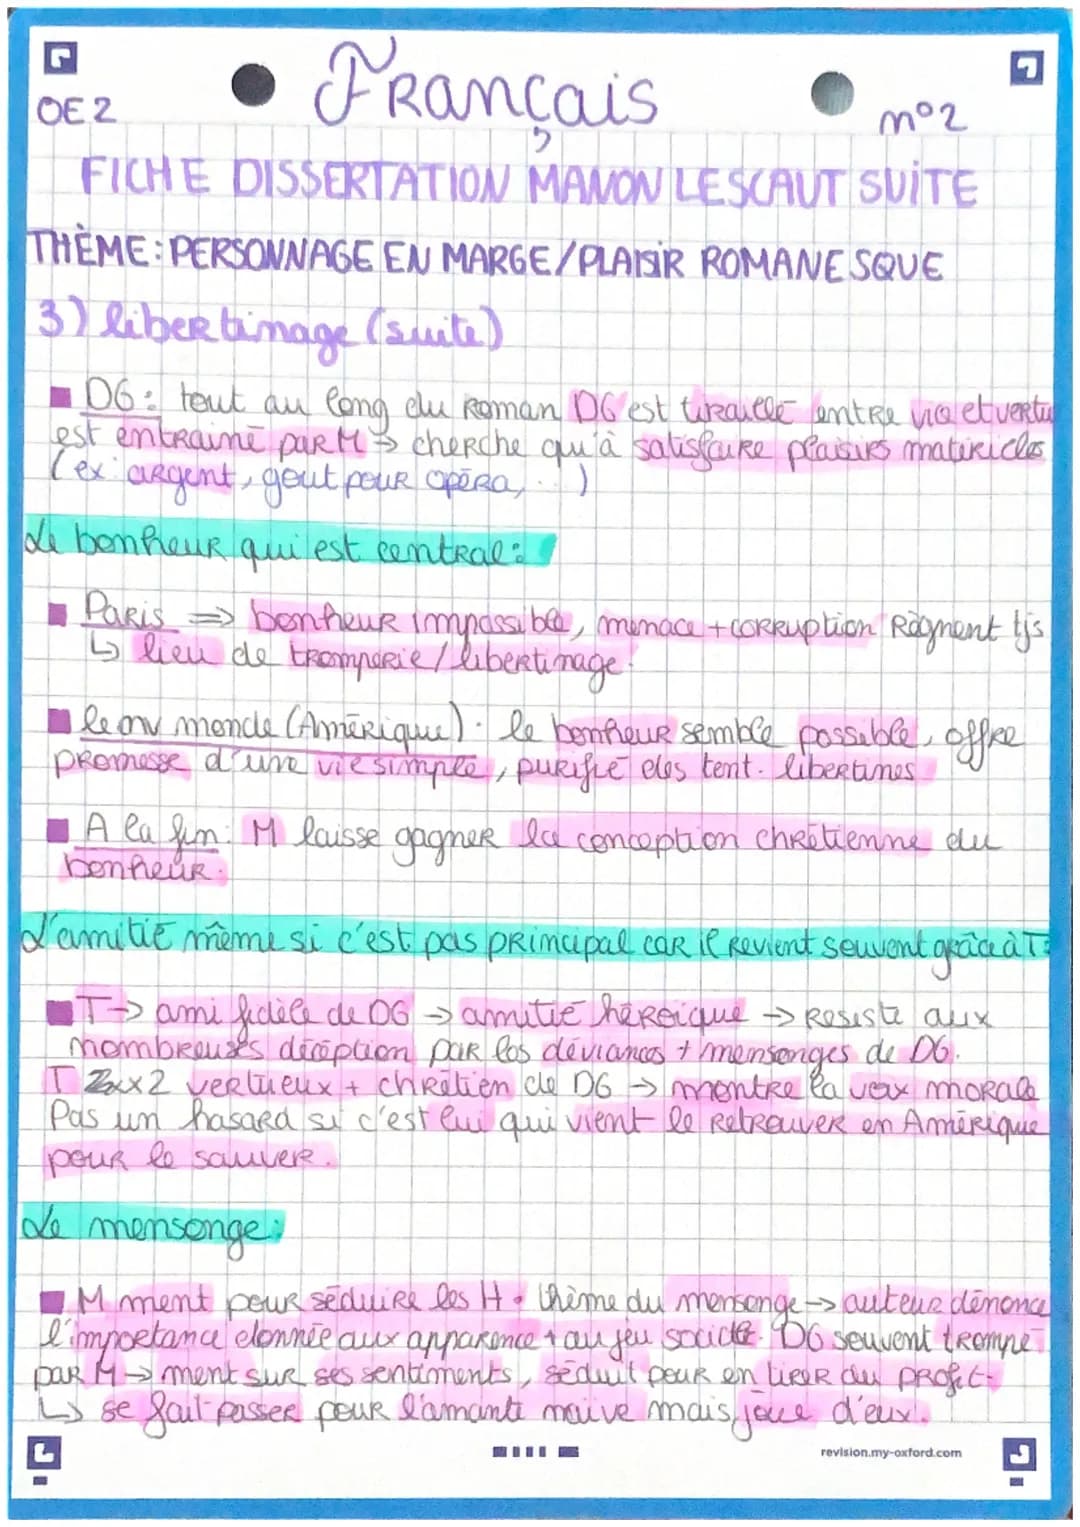 OE 2
Français
n°2
FICHE DISSERTATION MANON LESCAUT SUITE
THÈME: PERSONNAGE EN MARGE/PLAISIR ROMANESQUE
3) libertinage (suite)
DG: tout au long du roman DG est tiraillé entre vice et vertu
est entrainé par M → cherche qu'à satisfaire plaisirs matériels
(ex: argent, gout pour opéra, ...)
Le bonheur qui est central:
Paris ⇒ bonheur impossible, menace + corruption règnent tjs
↳ lieu de tromperie/libertinage.
le nv monde (Amérique): le bonheur semble possible, offre
promesse d'une vie simple, purifié des tent. libertines
A la fin: M laisse gagner la conception chrétienne du
bonheur.
L'amitié même si c'est pas principal car il revient souvent grâce à T:
T → ami fidèle de DG → amitié héroïque → resiste aux
nombreuses déception par les déviances + mensonges de DG.
T x2 vertueux + chrétien de DG → montre la voix morale
Pas un hasard si c'est lui qui vient le retrouver en Amérique
pour le sauver.
Le mensonge:
M ment pour séduire les H. thème du mensonge → auteur dénonce
l'importance donnée aux apparence + au jeu social. DG souvent trompé
par M → ment sur ses sentiments, séduit pour en tirer du profit.
↳ se fait passer pour l'amante naïve mais joue d'eux.
revision.my-oxford.com